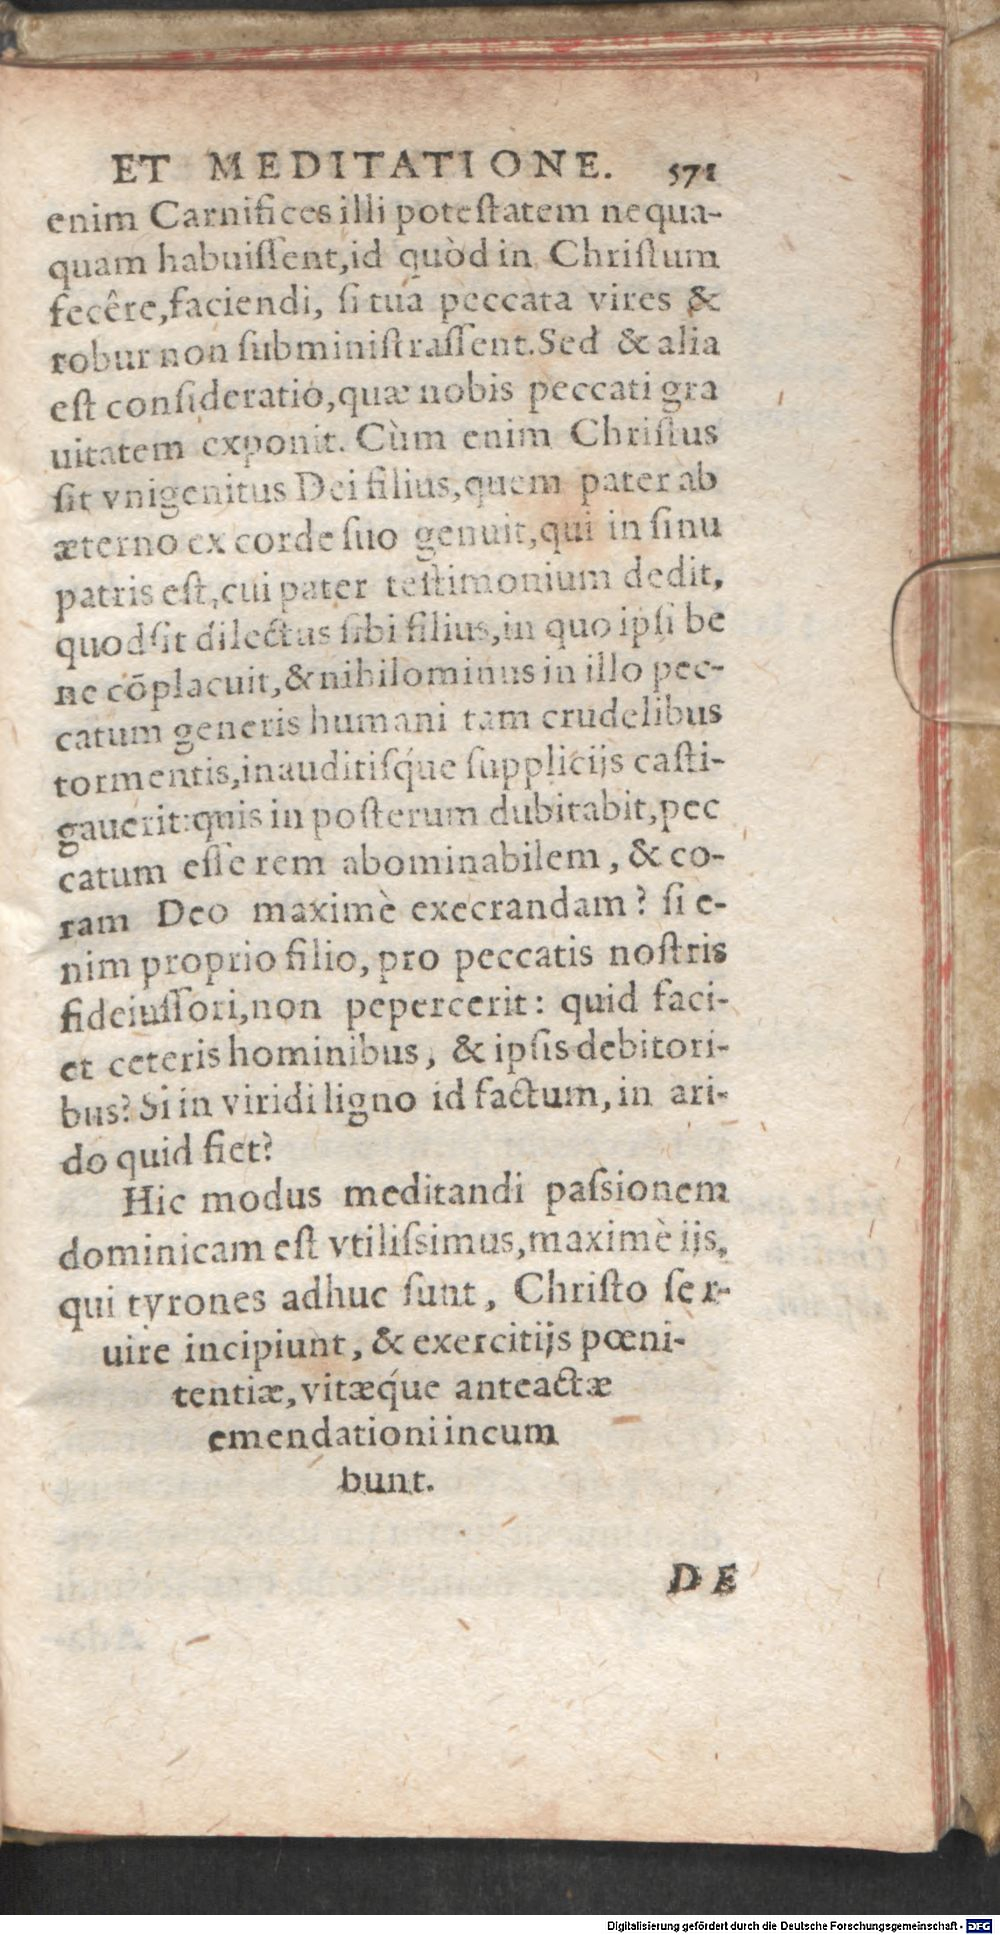 ET MEDITATIONE. 571
enim Carnifices illi poteſtatem nequa-
quam habuiſſent,id quòd in Chriſtum
fecêre,faciendi, ſi tua peccata vires &
robur non ſubminiſtraſſent.Sed & alia
eſt conſideratio,quæ nobis peccati gra
uitatem exponit. Cùm enim Chriſtus
ſit vnigenitus Dei filius,quem pater ab
æterno ex corde ſuo genuit,qui in ſinu
patris eſt,cui pater teſtimonium dedit,
quod ſit dilectus ſibi filius,in quo ipſi be
ne cōplacuit,& nihilominus in illo pec-
catum generis humani tam crudelibus
tormentis,inauditiſq́ue ſupplicijs caſti-
gauerit:quis in poſterum dubitabit,pec
catum eſſe rem abominabilem, & co-
ram Deo maximè execrandam? ſi e-
nim proprio filio, pro peccatis noſtris
fideiuſſori,non pepercerit: quid faci-
et ceteris hominibus, & ipſis debitori-
bus? Si in viridi ligno id factum, in ari-
do quid fiet?
Hic modus meditandi paſsionem
dominicam eſt vtiliſsimus,maximè ijs,
qui tyrones adhuc ſunt, Chriſto ſer-
uire incipiunt, & exercitijs pœni-
tentiæ,vitæq́ue anteactæ
emendationi incum
bunt.
DE
Digitalisierung gefördert durch die Deutsche Forschungsgemeinschaft - DFG